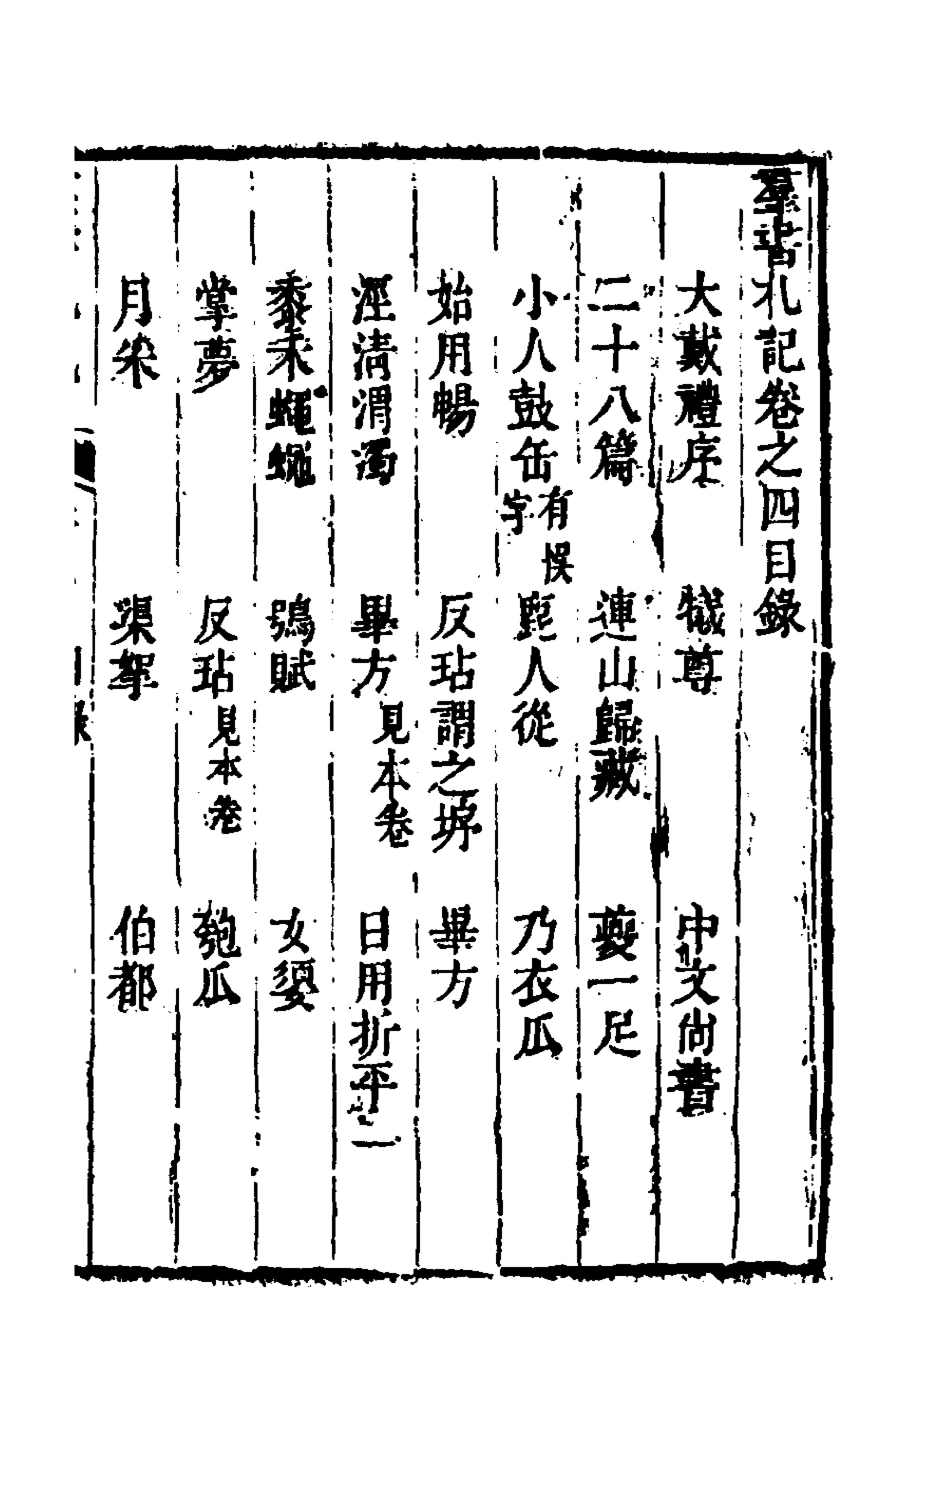 羣書札記卷之四目錄
大戴禮序　犧尊　中文尚書
二十八篇　連山歸藏　夔一足
小人鼓缶有誤字　麀人從　乃衣瓜
始用暢　反玷謂之垿　畢方
涇淸渭濁　畢方見本卷　日用折平一
黍禾蠅蠅　鴞賦　女嬃
掌夢　反玷見本卷　匏瓜
月采　渠挐　伯都